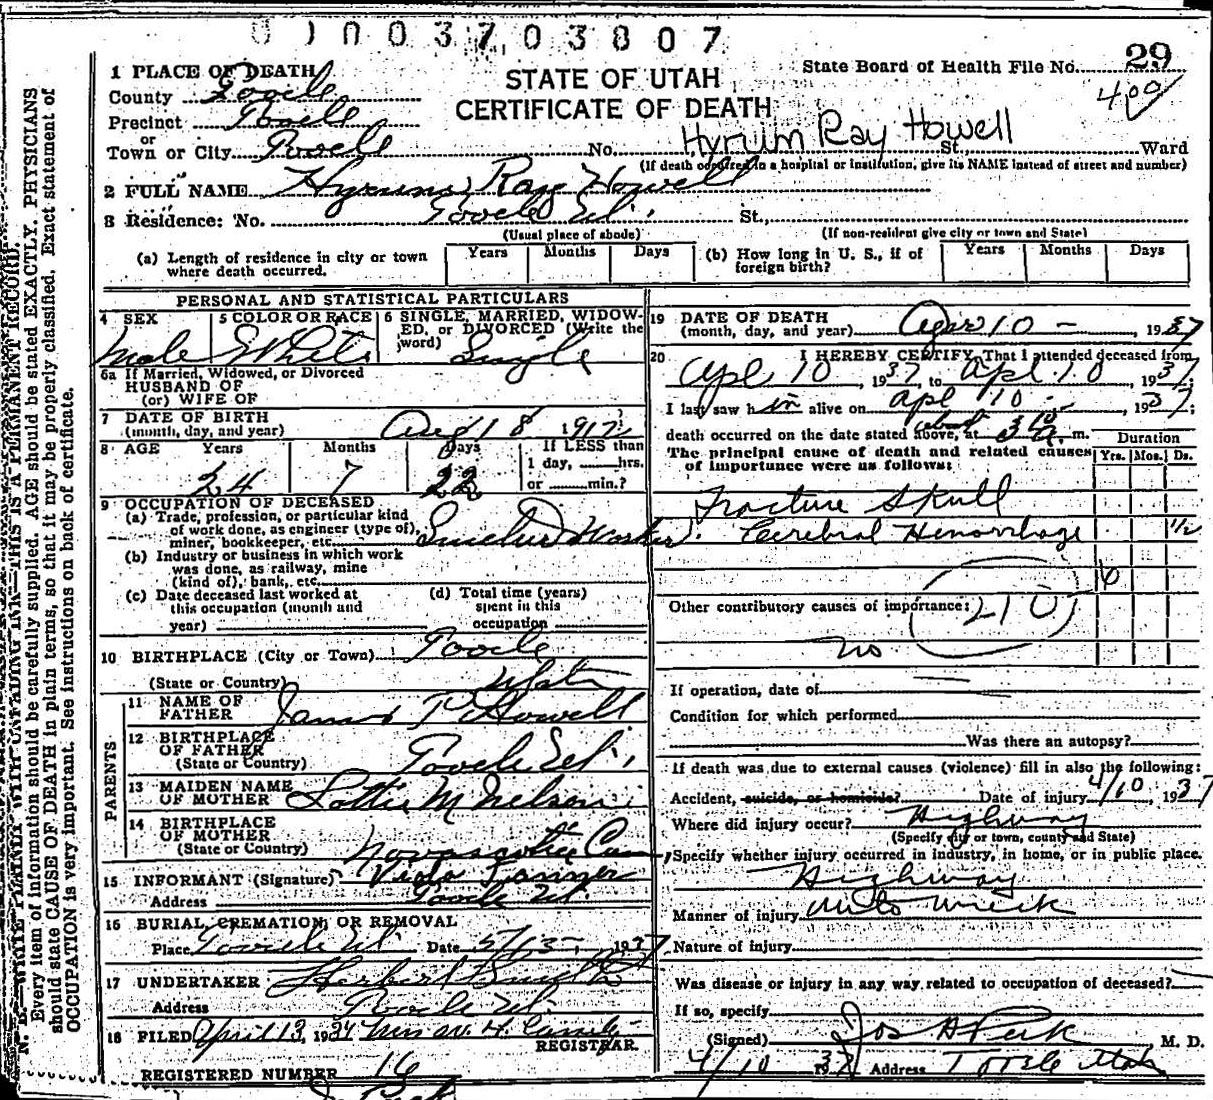 003703807
29
State Board of Health File No.
400
STATE OF UTAH
CERTIFICATE OF DEATH
1 PLACE OF DEATH
County Tooele
Precinct Tooele
or
Town or City Tooele No. St. Ward
Hyrum Ray Howell
(If death occurred in a hospital or institution, give its NAME instead of street and number)
2 FULL NAME Hyrum Ray Howell
3 Residence: No. Tooele Ut. St.,
(Usual place of abode) (If non-resident give city or town and State)
(a) Length of residence in city or town where death occurred. Years Months Days (b) How long in U. S., if of foreign birth? Years Months Days
PERSONAL AND STATISTICAL PARTICULARS
4 SEX 5 COLOR OR RACE 6 SINGLE, MARRIED, WIDOWED, or DIVORCED (Write the word)
Male White Single
6a If Married, Widowed, or Divorced
HUSBAND OF
(or) WIFE OF
7 DATE OF BIRTH
(month, day, and year) Aug 18 1912
8 AGE Years Months Days If LESS than
1 day, hrs.
or min.?
24 7 22
9 OCCUPATION OF DECEASED
(a) Trade, profession, or particular kind
of work done, as engineer (type of),
miner, bookkeeper, etc. Smelter Worker
(b) Industry or business in which work
was done, as railway, mine
(kind of), bank, etc.
(c) Date deceased last worked at
this occupation (month and
year)
(d) Total time (years)
spent in this
occupation
10 BIRTHPLACE (City or Town) Tooele
(State or Country) Utah
PARENTS
11 NAME OF
FATHER James P Howell
12 BIRTHPLACE
OF FATHER
(State or Country) Tooele Ut.
13 MAIDEN NAME
OF MOTHER Lottie M Nelson
14 BIRTHPLACE
OF MOTHER
(State or Country) Novascotia Can
15 INFORMANT (Signature)
Address Tooele Ut.
16 BURIAL, CREMATION, OR REMOVAL
Place Tooele Ut Date 1937
17 UNDERTAKER Herbert
Address Tooele Ut.
18 FILED April 13, 19
REGISTRAR.
REGISTERED NUMBER 16
19 DATE OF DEATH
(month, day, and year) Apr 10 - , 1937
20 I HEREBY CERTIFY, That I attended deceased from
Apl 10, 1937, to Apl. 10, 1937;
I last saw him alive on Apl 10 - , 1937;
death occurred on the date stated above, at about 3 a. m.
The principal cause of death and related causes
of importance were as follows:
Duration
Yrs. Mos. Ds.
Fracture Skull
Cerebral Hemorrhage 1/2
6
Other contributory causes of importance: 210
no
If operation, date of
Condition for which performed
Was there an autopsy?
If death was due to external causes (violence) fill in also the following:
Accident, suicide, or homicide? Date of injury 4/10, 1937
Where did injury occur? Highway
(Specify city or town, county and State)
Specify whether injury occurred in industry, in home, or in public place.
Highway
Manner of injury Auto wreck
Nature of injury
Was disease or injury in any way related to occupation of deceased?
If so, specify
(Signed) Jos A Peck M. D.
4/10 1937 Address Tooele Utah
N. B.—WRITE PLAINLY WITH UNFADING INK—THIS IS A PERMANENT RECORD.
Every item of information should be carefully supplied. AGE should be stated EXACTLY. PHYSICIANS
should state CAUSE OF DEATH in plain terms, so that it may be properly classified. Exact statement of
OCCUPATION is very important. See instructions on back of certificate.